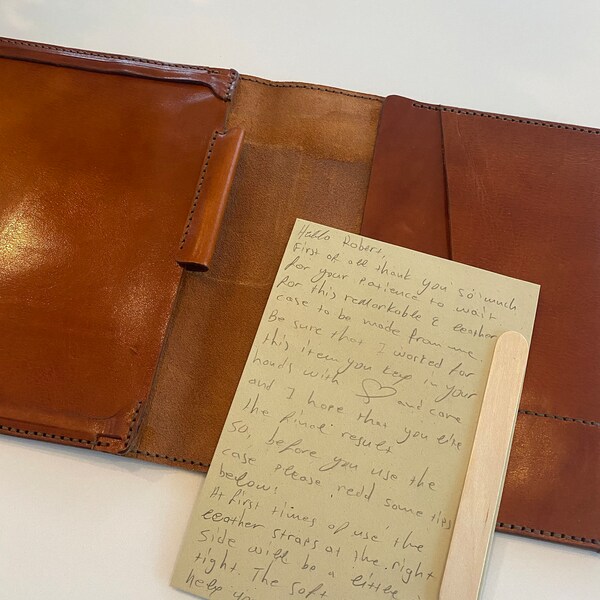 Hello Robert,
First of all thank you so much
for your patience to wait
for this remarkable & leather
case to be made from me.
Be sure that I worked for
this item you keep in your
hands with ♡ and care
and I hope that you like
the final result
So, before you use the
case please redd some tips
below:
At first times of use the
leather straps at the right
side will be a little
tight. The soft
help you